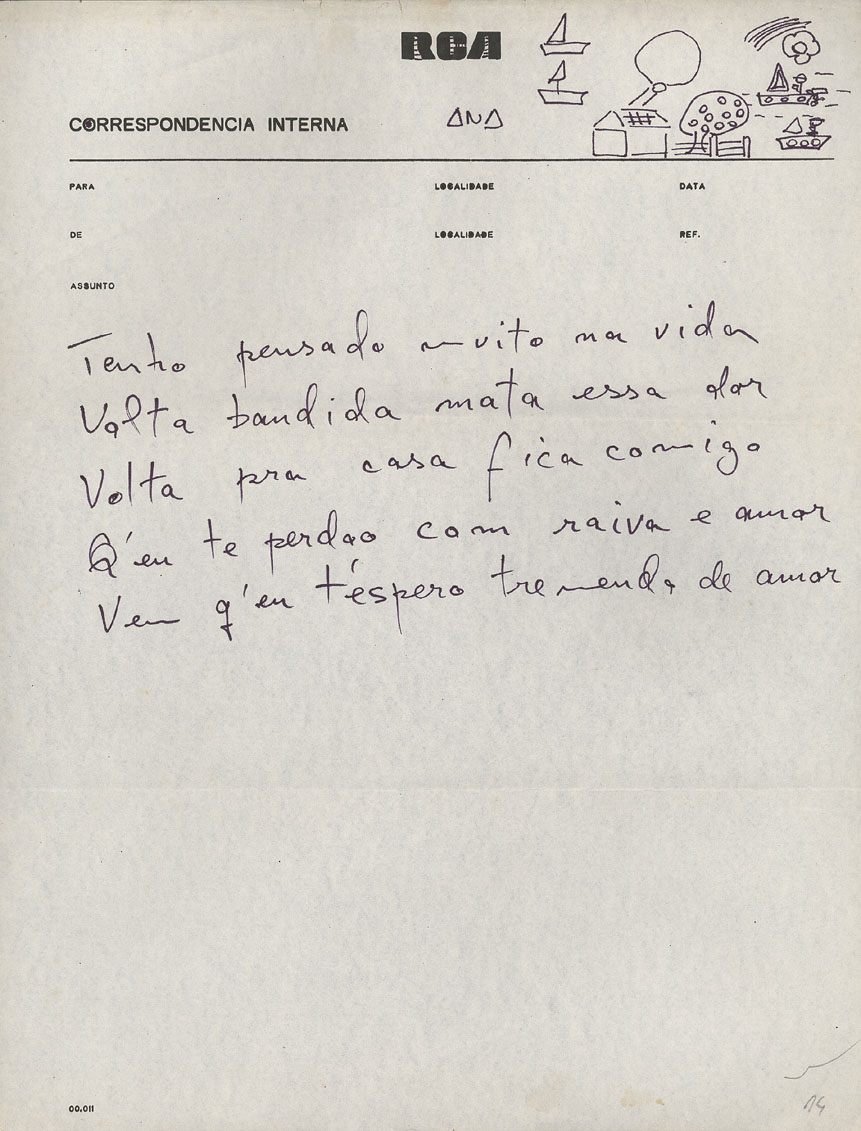 RCA
CORRESPONDENCIA INTERNA ANA
PARA LOCALIDADE DATA
DE LOCALIDADE REF.
ASSUNTO
Tenho pensado muito na vida
Volta bandida mata essa dor
Volta pra casa fica comigo
Q'eu te perdôo com raiva e amor
Vem q'eu t'éspero tremendo de amor
00.011
14